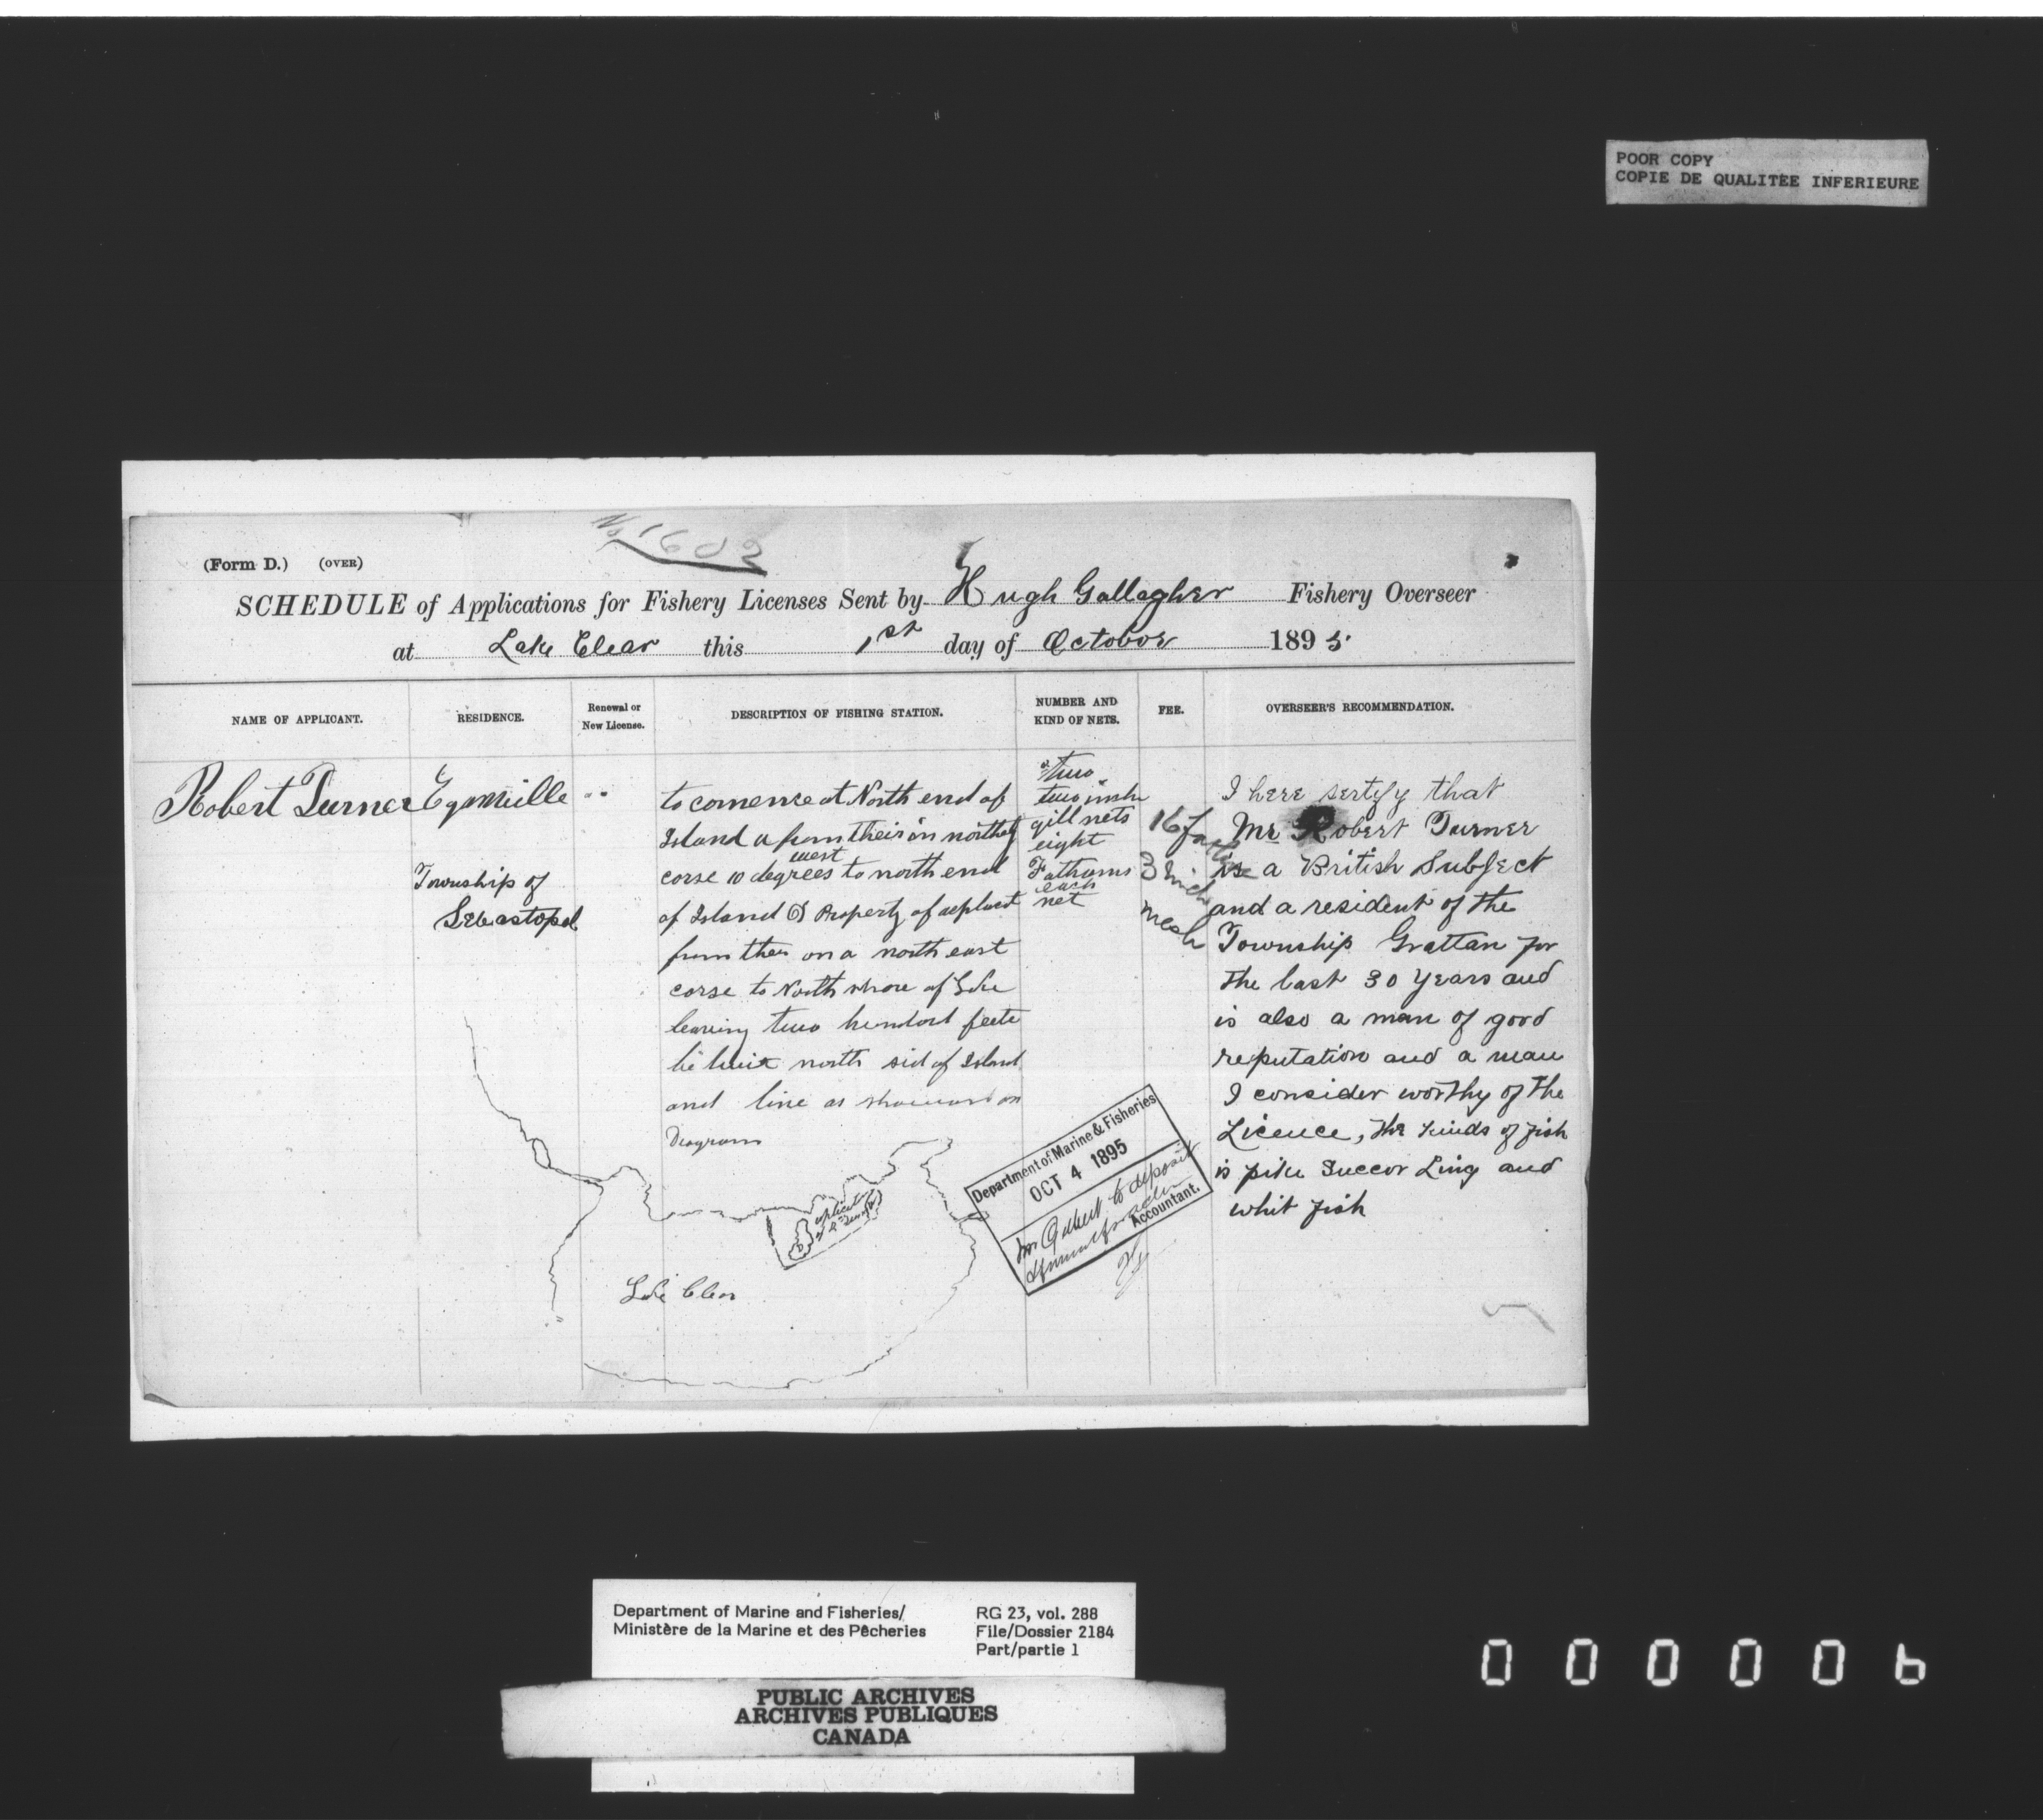 POOR COPY
COPIE DE QUALITEE INFERIEURE
No 1602
(Form D.) (OVER)
SCHEDULE of Applications for Fishery Licenses Sent by Hugh Gallagher Fishery Overseer
at Lake Clear this 1st day of October 1895
NAME OF APPLICANT.
RESIDENCE.
Renewal or
New License.
DESCRIPTION OF FISHING STATION.
NUMBER AND
KIND OF NETS.
FEE.
OVERSEER'S RECOMMENDATION.
Robert Turner
Eganville
Township of
Sebastopol
to comence at North end of
Island a from their on northely
corse 10 degrees west to north end
of Island D Property of
from ther on a north east
corse to North shore of Lake
leaving two hundord feete
north sid of Island
and line as on
Diagram
two
two inch
gill nets
eight
Fathoms
each
net
16 fath
3 Inch
mesh
I here sertify that
Mr Robert Turner
is a British Subject
and a resident of the
Township Grattan for
the last 30 years and
is also a man of good
reputation and a man
I consider worthy of the
Licence, the kinds of fish
is pike Succor Ling and
whit fish
Department of Marine & Fisheries
OCT 4 1895
Mr Gilbert to deposit
Accountant.
aplication
of R Turner
D
Lake Clear
Department of Marine and Fisheries/
Ministère de la Marine et des Pêcheries
RG 23, vol. 288
File/Dossier 2184
Part/partie 1
PUBLIC ARCHIVES
ARCHIVES PUBLIQUES
CANADA
000006